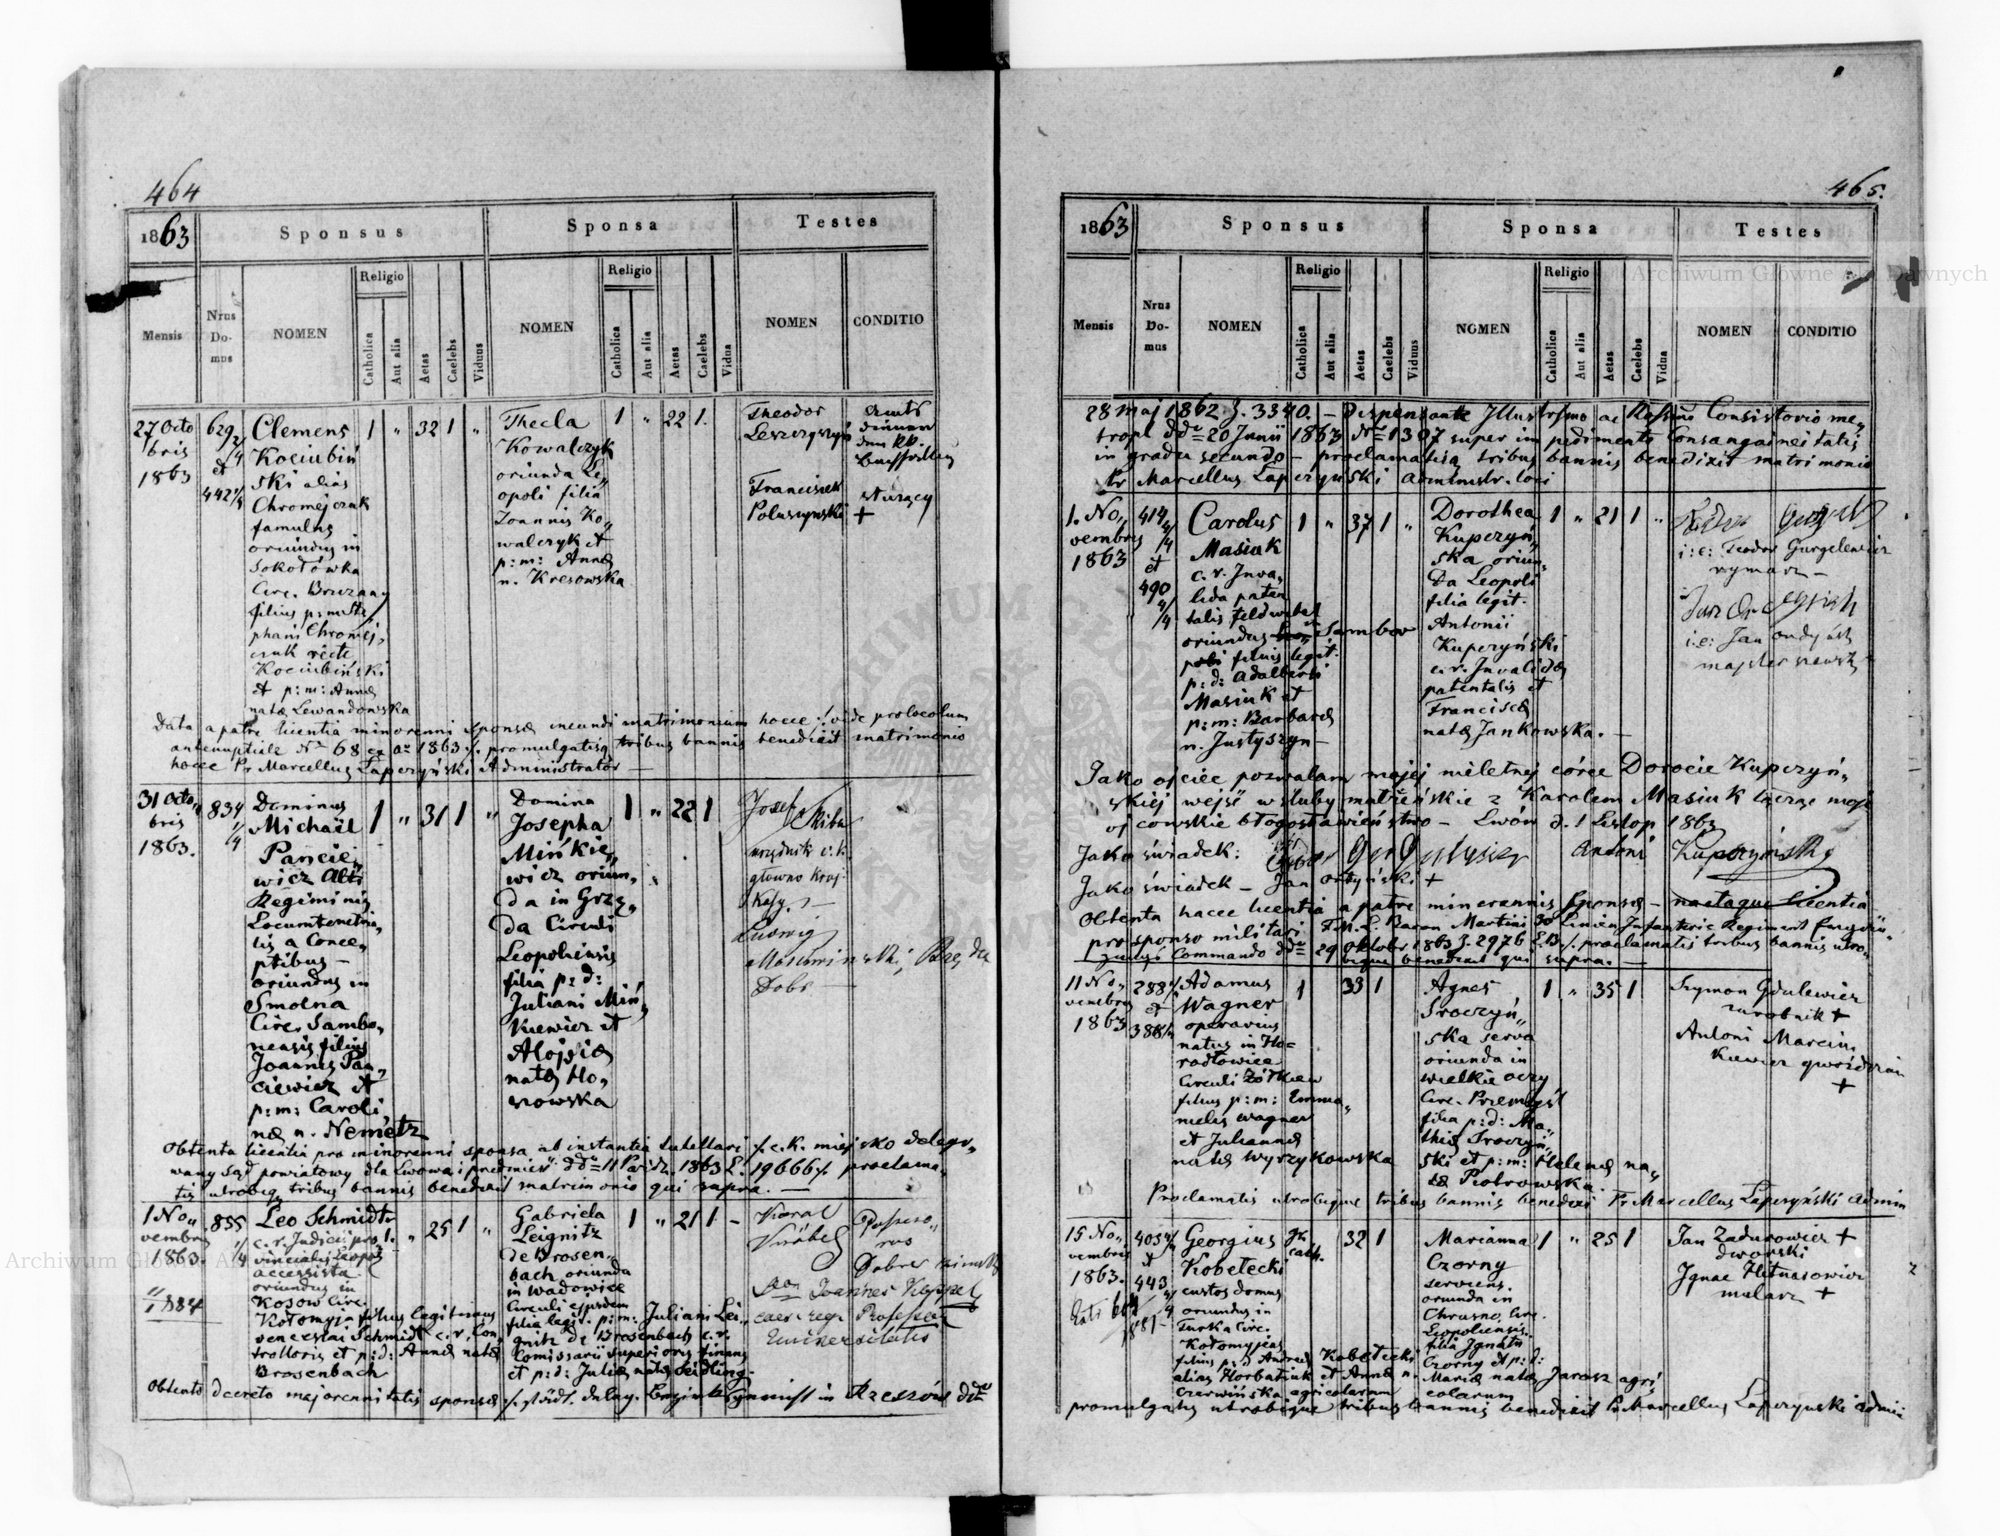 464
1863
Sponsus
Sponsa
Testes
Mensis
Nrus Domus
NOMEN
Religio
Catholica
Aut alia
Aetas
Caelebs
Viduus
NOMEN
Religio
Catholica
Aut alia
Aetas
Caelebs
Vidua
NOMEN
CONDITIO
27 Octo
bris
1863
629 2/4
et
442 4/4
Clemens
Kociubiń
ski alias
Chromejczuk
famulus
oriundus in
Sokołówka
Circ. Brzezan
filius p: m: Ste
phani Chromej„
czuk recte
Kociubiński
et p: m: Annæ
natæ Lewandowska
1 „ 32 1 „
Thecla
Kowalczyk
oriunda Le„
opoli filia
Joannis Ko„
walczyk et
p: m: Annæ
n. Kresowska
1 „ 22 1.
Theodor
Leszczyszyn
Amts
diener
Franciszek
Poluszynski
stuzący
+
Data a patre licentia minorenni sponsæ ineundi matrimonium hocce /: vide protocolum
antenuptiale No 68 ex ao 1863 :/. promulgatisq tribus bannis benedixit matrimonio
hocce Pr Marcellus Łapczyński Administrator —
31 Octo„
bris
1863.
834
1/4
Dominus
Michaël
Pańcie„
wicz
Regiminis
Locumtenetia„
lis a Conce„
ptibus —
oriundus in
Smolna
Circ. Sambo„
riensis filius
Joannis Pań„
ciewicz et
p: m: Caroli„
næ n. Nemetz
1 „ 31 1 „
Domina
Josepha
Mińkie„
wicz oriun„
da in Grzę„
da Circuli
Leopoliensis
filia p: d:
Juliani Miń„
kiewicz et
Alojsiæ
natæ Ho„
nowska
1 „ 22 1
Josef Skiba
urzędnik c. k.
główno kraj.
Kasy. —
Ludwig
Obtenta licentia pro minorenni sponsa ab instantia tutellari /. c. k. miejsko delego„
wany Sąd powiatowy dla Lwowa i przedmieś: ddto 11 Paźdz. 1863 L. 19666 /. proclama„
tis utrobiq tribus bannis benedixit matrimonio qui supra. —
1 No„
vembris
1863.
855
1/4
Leo Schmidt
c. r. Judicii pro„
vincialis Leopol
accessista
oriundus in
Kosow Circ.
Kołomyja filius legitimus
venceslai Schmidt c. r. Con„
trolloris et p: d: Annæ natæ
Brosenbach
1. „ 25 1 „
Gabriela
Leignitz
de Brosen„
bach oriunda
in Wadowice
Circuli ejusdem
filia legit. p: m: Juliani Lei„
gnitz de Brosenbach c. r.
Comissarii superioris finans
et p: d: Juliæ natæ Seidling.
1 „ 21 1. –
Karol
Wróbel
Dobrer
Joannes
caes: reg: Professor
Universitatis
Obtento decreto majorennitatis sponsæ /. städt. deleg. Bezirks in Rzeszów ddto
465.
1863
Sponsus
Sponsa
Testes
Mensis
Nrus Domus
NOMEN
Religio
Catholica
Aut alia
Aetas
Caelebs
Viduus
NOMEN
Religio
Catholica
Aut alia
Aetas
Caelebs
Vidua
NOMEN
CONDITIO
28 Maj 1862 Z. 3340. — Dispensante Illustrsmo ac Rssmo Consistorio me„
tropl. ddto 20 Junii 1863 Nro 1307 super impedimento Consanguineitatis
in gradu secundo – proclamatisq tribus bannis benedixit matrimonio
Pr Marcellus Łapczyński Administr. loci
1. No„
vembris
1863
414
4/4
et
490
4/4
Carolus
Masiuk
c. r. Inva„
lida paten
talis feldwebel
oriundus Sambor
filius legit.
p: d: Adalberti
Masiuk et
p: m: Barbaræ
n. Justyszyn —
1 „ 37 1 „
Dorothea
Kupczyń„
ska oriun„
da Leopoli
filia legit.
Antonii
Kupczyński
c. r. Invalidæ
patentalis et
Franciscæ
natæ Jankowska. —
1 „ 21 1 „
i: e: Teodor Gurgelewicz
rymarz —
i: e: Jan
majster
Jako ojciec pozwalam mojej niéletnej córce Dorocie Kupczyń„
skiéj wejść w śluby małżeńskie z Karolem Masiuk łącząc moje
ojcowskie błogosławieństwo — Lwów d. 1 Listop 1863
Jako świadek:
Antoni Kupczyński
Jako świadek — Jan +
Obtenta hacce licentia a patre minorennis Sponsæ – nactaque licentia
pro sponso militari F.M.L. Baron Martini 30 Linien Infanterie Regiment
Commando ddto 29 Oktobr 1863 Z. 2976 :/. proclamatis tribus bannis utro„
bique benedixit qui supra. —
11 No„
vembris
1863
288
et
388
Adamus
Wagner
operarius
natus in Ho=
rodłowice
Circuli Żółkiew
filius p: m: Emma„
nuelis Wagner
et Juliannæ
natæ Wyrzykowska
1 33 1
Agnes
Sroczyń„
ska serva
oriunda in
wielkie oczy
Circ. Przemyśl
filia p: d: Ma„
thiæ Sroczyń„
ski et p: m: Helenæ na„
tæ Piotrowska
1 „ 35 1
Szymon Gdulewicz
zarobnik +
Antoni Marcin„
kiewicz gwoździarz
+
Proclamatis utrobique tribus bannis benedixi Pr Marcellus Łapczyński Admin
15 No„
vembris
1863.
405
et
443
4/4
Georgius
Kobełecki
custos domus
oriundus in
Turka Circ.
Kołomyjeæ
filius p: d Andreæ Kobełecki
alias Horbatiuk et Annæ n.
Czerwińska agricolarum
gr.
cath.
32 1
Marianna
Czorny
serviens
oriunda in
Chrusno Circ.
Leopoliensis
filia Ignatii
Czorny et p: d:
Mariæ natæ Jarosz agri„
colarum
1 „ 25 1
Jan Zadurowicz +
dworski
Ignac Hetnasowicz
malarz +
promulgatis utrobique tribus bannis benedixit Pr Marcellus Łapczynski Admin
Archiwum Główne Akt Dawnych